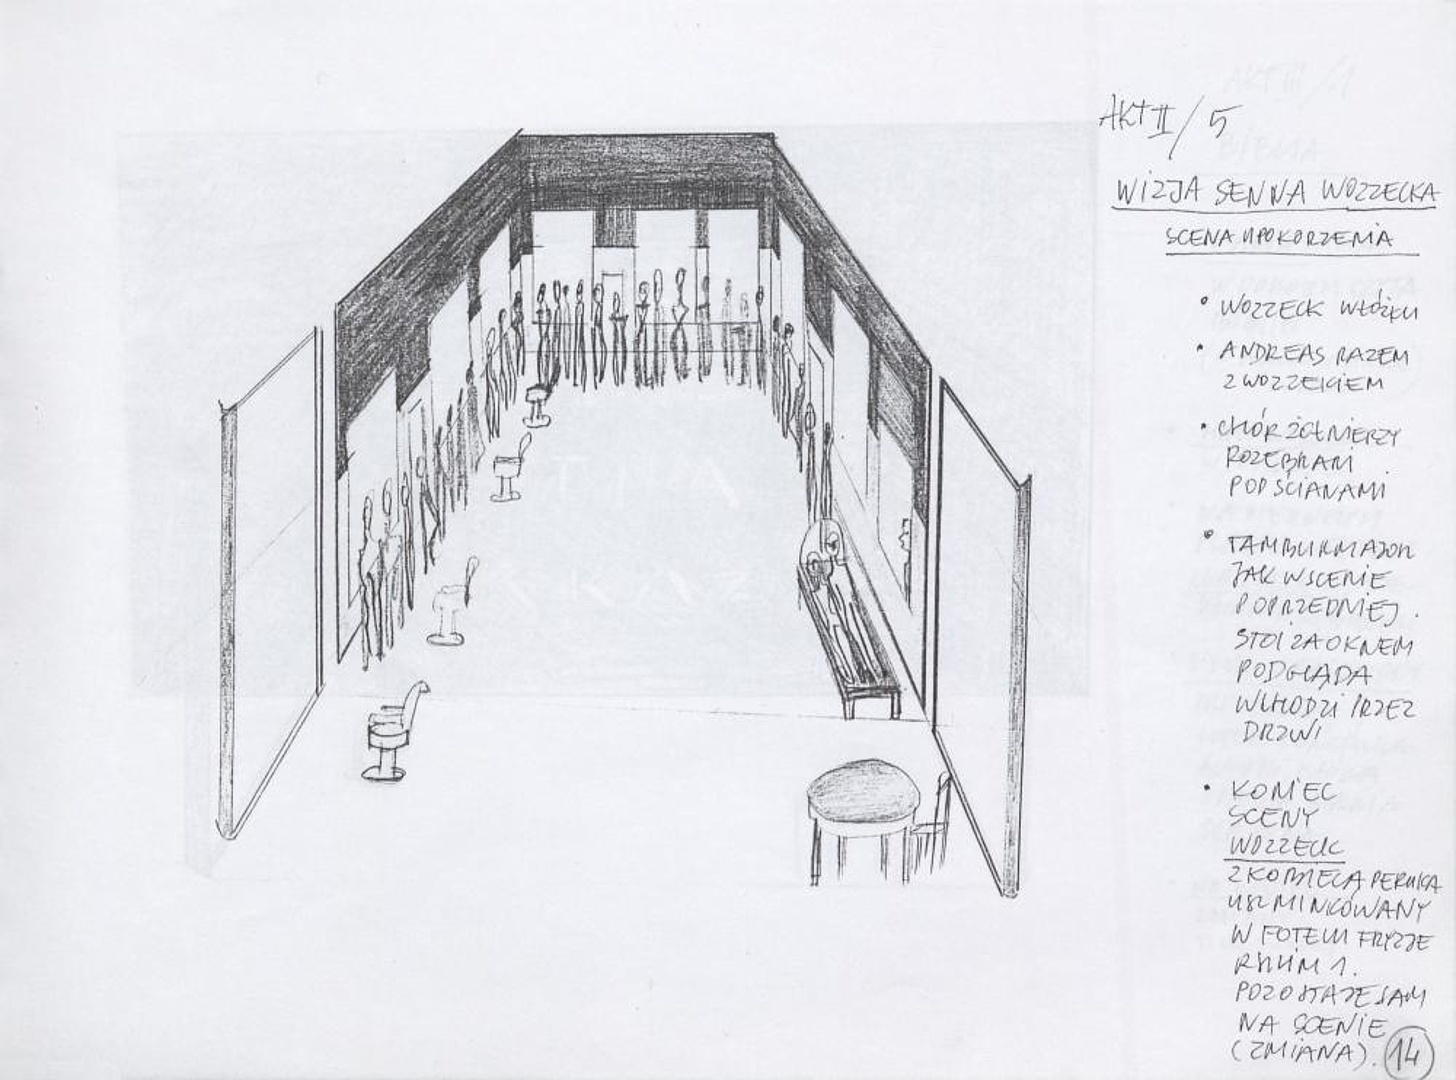 AKT II / 5
WIZJA SENNA WOZZECKA
SCENA UPOKORZENIA
• WOZZECK W ŁÓŻKU
• ANDREAS RAZEM
Z WOZZECKIEM
• CHÓR ŻOŁNIERZY
ROZEBRANI
POD ŚCIANAMI
• TAMBURMAJOR
JAK W SCENIE
POPRZEDNIEJ.
STOI ZA OKNEM
PODGLĄDA
WCHODZI PRZEZ
DRZWI
• KONIEC
SCENY
WOZZECK
Z KOBIECĄ PERUKĄ
USZMINKOWANY
W FOTELU FRYZJE
RSKIM 1.
POZOSTAJE SAM
NA SCENIE
(ZMIANA).
14